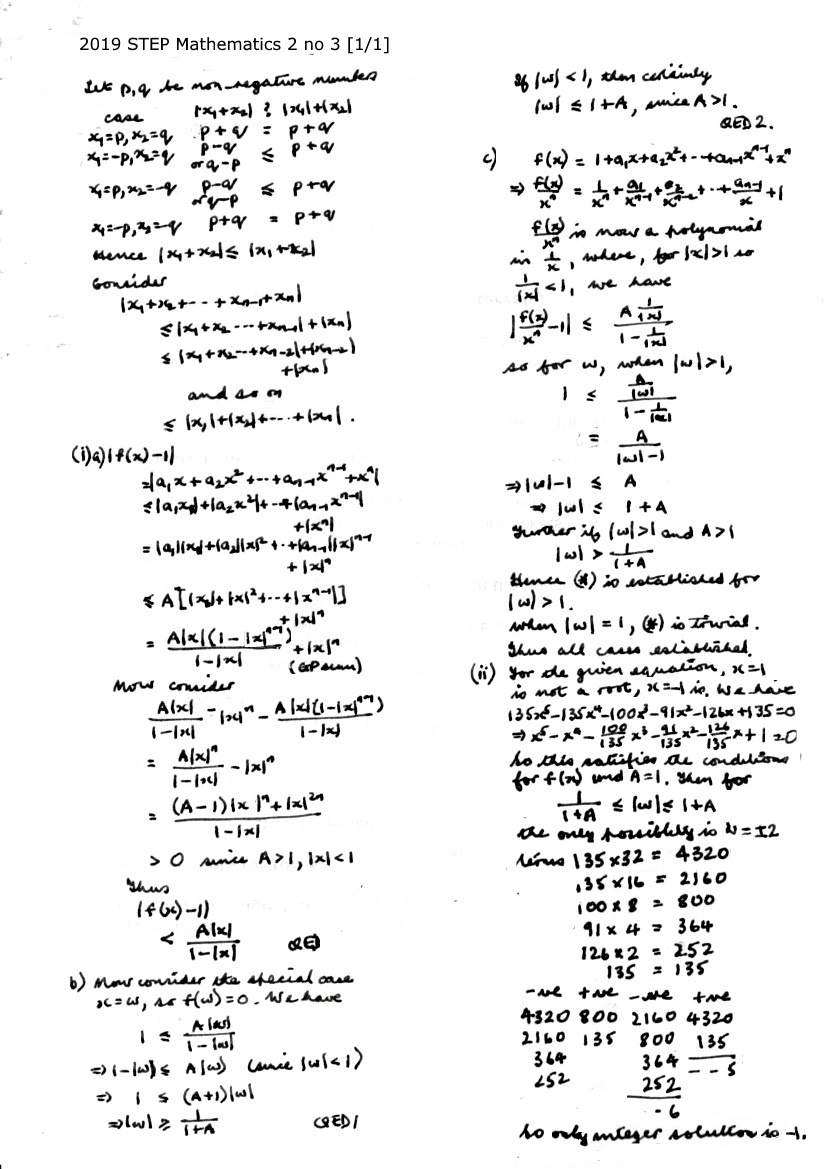 2019 STEP Mathematics 2 no 3 [1/1]
Let p,q be non-negative numbers
case |x₁+x₂| ? |x₁|+|x₂|
x₁=p, x₂=q p+q = p+q
x₁=-p, x₂=q p-q ≤ p+q
or q-p
x₁=p, x₂=-q p-q ≤ p+q
or q-p
x₁=-p, x₂=-q p+q = p+q
Hence |x₁+x₂| ≤ |x₁+x₂|
Consider
|x₁+x₂+--+xₙ₋₁+xₙ|
≤ |x₁+x₂---+xₙ₋₁|+|xₙ|
≤ |x₁+x₂--+xₙ₋₂|+|xₙ₋₂|
+|xₙ|
and so on
≤ |x₁|+|x₂|+--·+|xₙ|.
(i)a) |f(x)-1|
=|a₁x+a₂x²+··+aₙ₋₁xⁿ⁻¹+xⁿ|
≤|a₁x|+|a₂x²|+··+|aₙ₋₁xⁿ⁻¹|
+|xⁿ|
=|a₁||x|+|a₂||x|²+··+|aₙ₋₁||x|ⁿ⁻¹
+|x|ⁿ
≤ A[|x|+|x|²+··+|xⁿ⁻¹|]
+|x|ⁿ
= A|x|(1-|x|ⁿ⁻¹)/(1-|x|) +|x|ⁿ
(GP sum)
Now consider
A|x|/(1-|x|) - |x|ⁿ - A|x|(1-|x|ⁿ⁻¹)/(1-|x|)
= A|x|ⁿ/(1-|x|) - |x|ⁿ
= ((A-1)|x|ⁿ+|x|²ⁿ)/(1-|x|)
> 0 since A>1, |x|<1
Thus
|f(x)-1|
< A|x|/(1-|x|) QED
b) Now consider the special case
x=ω, so f(ω)=0. We have
1 ≤ A|ω|/(1-|ω|)
⇒ 1-|ω| ≤ A|ω| (since |ω|<1)
⇒ 1 ≤ (A+1)|ω|
⇒ |ω| ≥ 1/(1+A) QED1
If |ω|<1, then certainly
|ω| ≤ 1+A, since A>1.
QED2.
c) f(x) = 1+a₁x+a₂x²+··+aₙ₋₁xⁿ⁻¹+xⁿ
⇒ f(x)/xⁿ = 1/xⁿ + a₁/xⁿ⁻¹ + a₂/xⁿ⁻² +··+ aₙ₋₁/x +1
f(x)/xⁿ is now a polynomial
in 1/x, where, for |x|>1 so
1/|x| <1, we have
|f(x)/xⁿ -1| ≤ A(1/|x|)/(1-1/|x|)
so for ω, when |ω|>1,
1 ≤ (A/|ω|)/(1-1/|x|)
= A/(|ω|-1)
⇒ |ω|-1 ≤ A
⇒ |ω| ≤ 1+A
Further if |ω|>1 and A>1
|ω| > 1/(1+A)
Hence (*) is established for
|ω|>1.
when |ω|=1, (*) is trivial.
Thus all cases established.
(ii) For the given equation, x=1
is not a root, x=-1 is. We have
135x⁵-135x⁴-100x³-91x²-126x+135=0
⇒ x⁵-x⁴-100/135 x³-91/135 x²-126/135 x+1=0
So this satisfies the conditions
for f(x) and A=1. Then for
1/(1+A) ≤ |ω| ≤ 1+A
the only possibility is ω=±2
terms 135×32 = 4320
135×16 = 2160
100×8 = 800
91×4 = 364
126×2 = 252
135 = 135
-ve +ve -ve +ve
4320 800 2160 4320
2160 135 800 135
364 364 ---5
252 252
-6
So only integer solution is -1.